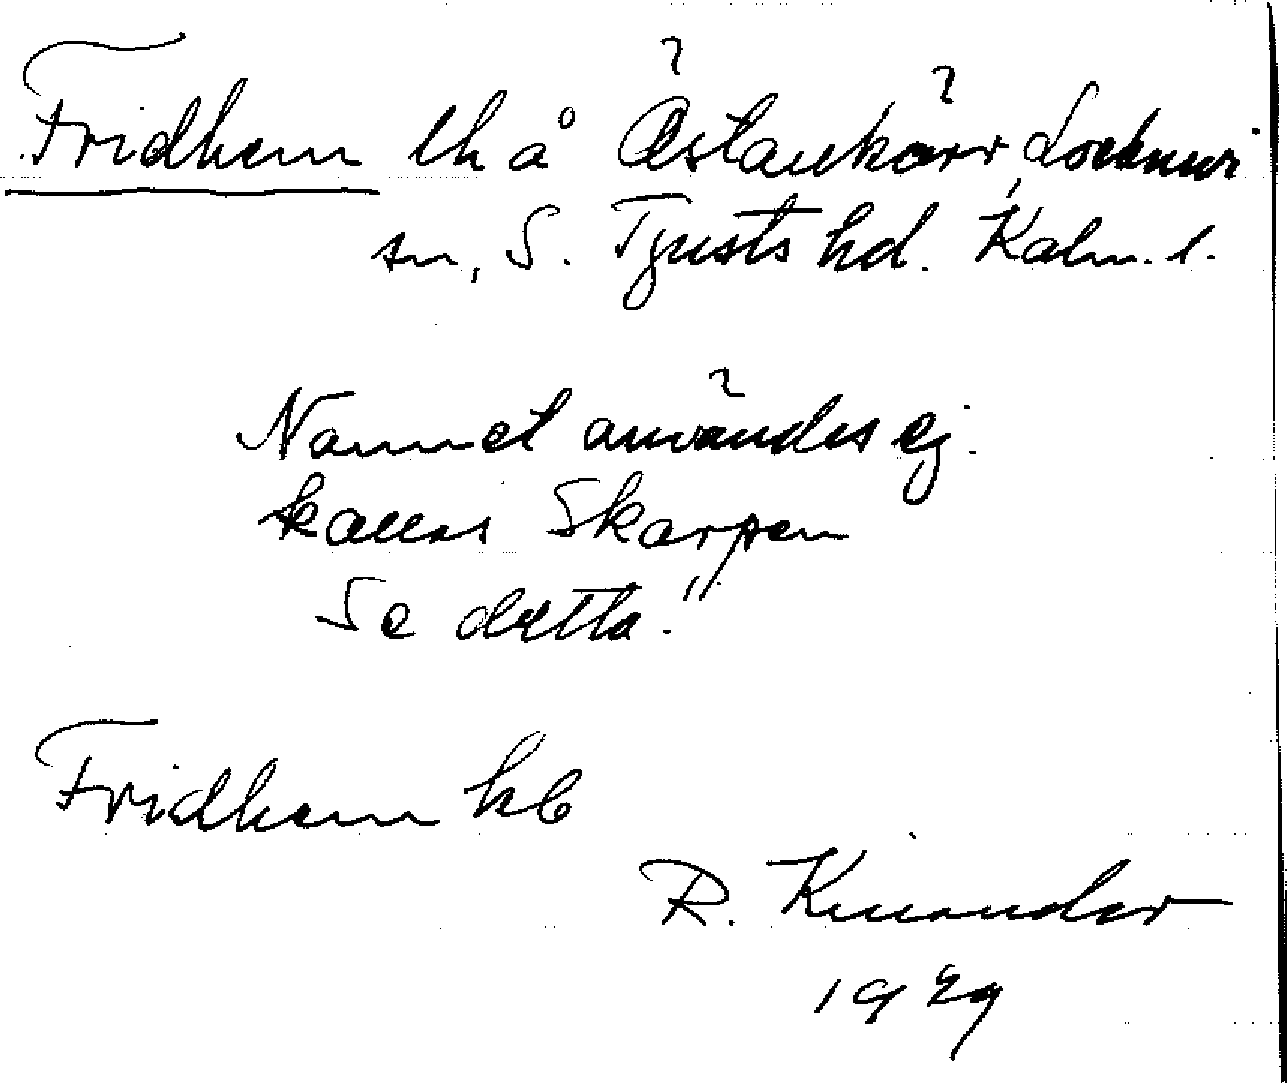 Fridhem lh å Östankärr, Locknevi
sn, S. Tjusts hd. Kalm. l.
Namnet användes ej.
kallas Skarpen
Se detta."
Fridhem kb
R. Kinander
1929